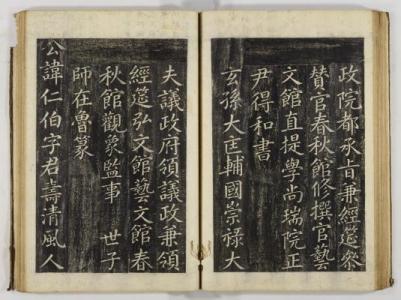 政院都承旨兼經筵參
贊官春秋館修撰官藝
文館直提學尚瑞院正
尹得和書
玄孫大匡輔國崇祿大
夫議政府領議政兼領
經筵弘文館藝文館春
秋館觀象監事 世子
師在魯篆
公諱仁伯字君壽清風人